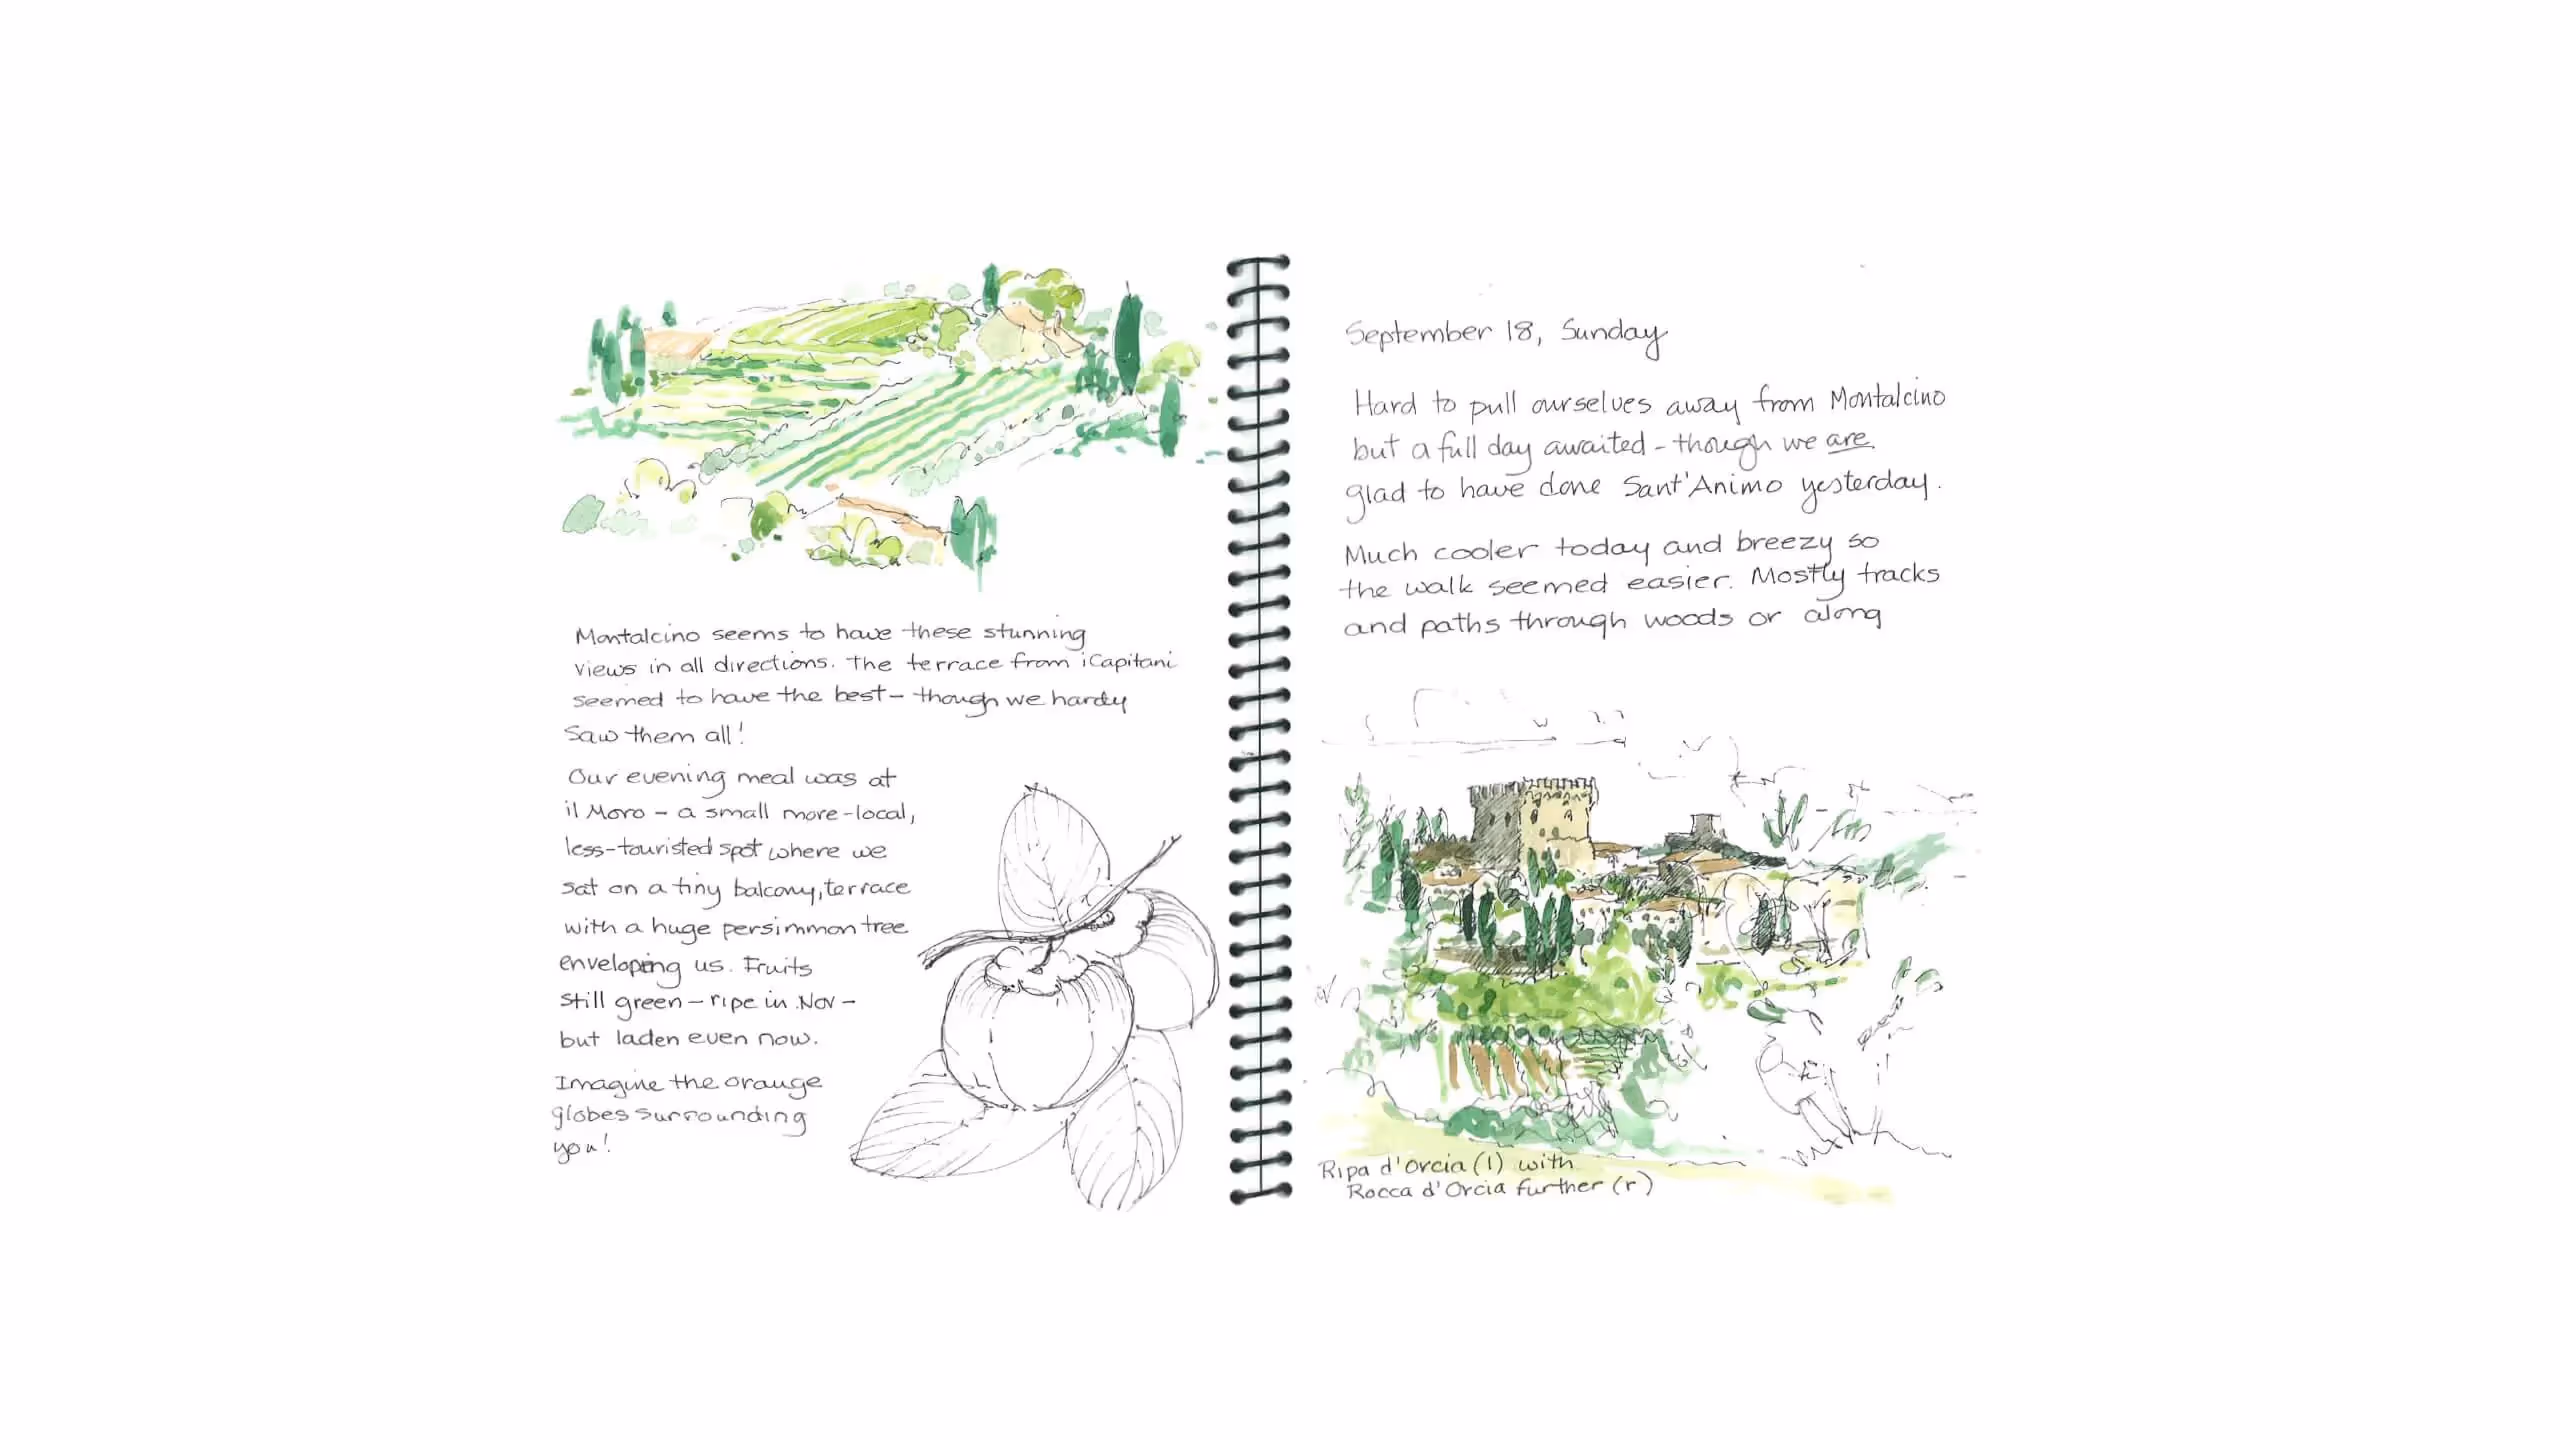 Montalcino seems to have these stunning
views in all directions. The terrace from iCapitani
seemed to have the best – though we hardy
saw them all!
Our evening meal was at
il Moro – a small more-local,
less-touristed spot where we
sat on a tiny balcony, terrace
with a huge persimmon tree
enveloping us. Fruits
still green – ripe in Nov –
but laden even now.
Imagine the orange
globes surrounding
you!
September 18, Sunday
Hard to pull ourselves away from Montalcino
but a full day awaited – though we are
glad to have done Sant'Animo yesterday.
Much cooler today and breezy so
the walk seemed easier. Mostly tracks
and paths through woods or along
Ripa d'Orcia (l) with
Rocca d'Orcia further (r)